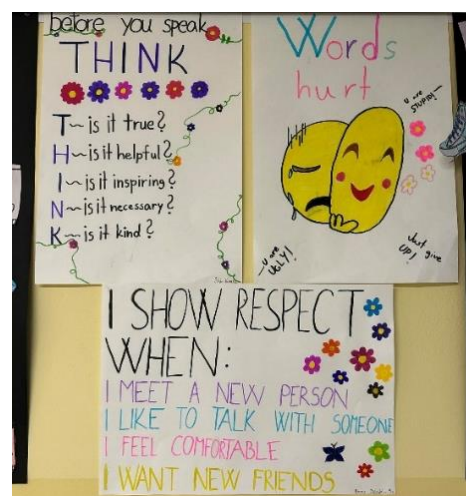 before you speak
THINK
T~is it true?
H~is it helpful?
I~is it inspiring?
N~is it necessary?
K~is it kind?
Words
hurt
U are
STUPID!
U are
UGLY!
Just give
UP!
I SHOW RESPECT
WHEN:
I MEET A NEW PERSON
I LIKE TO TALK WITH SOMEONE
I FEEL COMFORTABLE
I WANT NEW FRIENDS